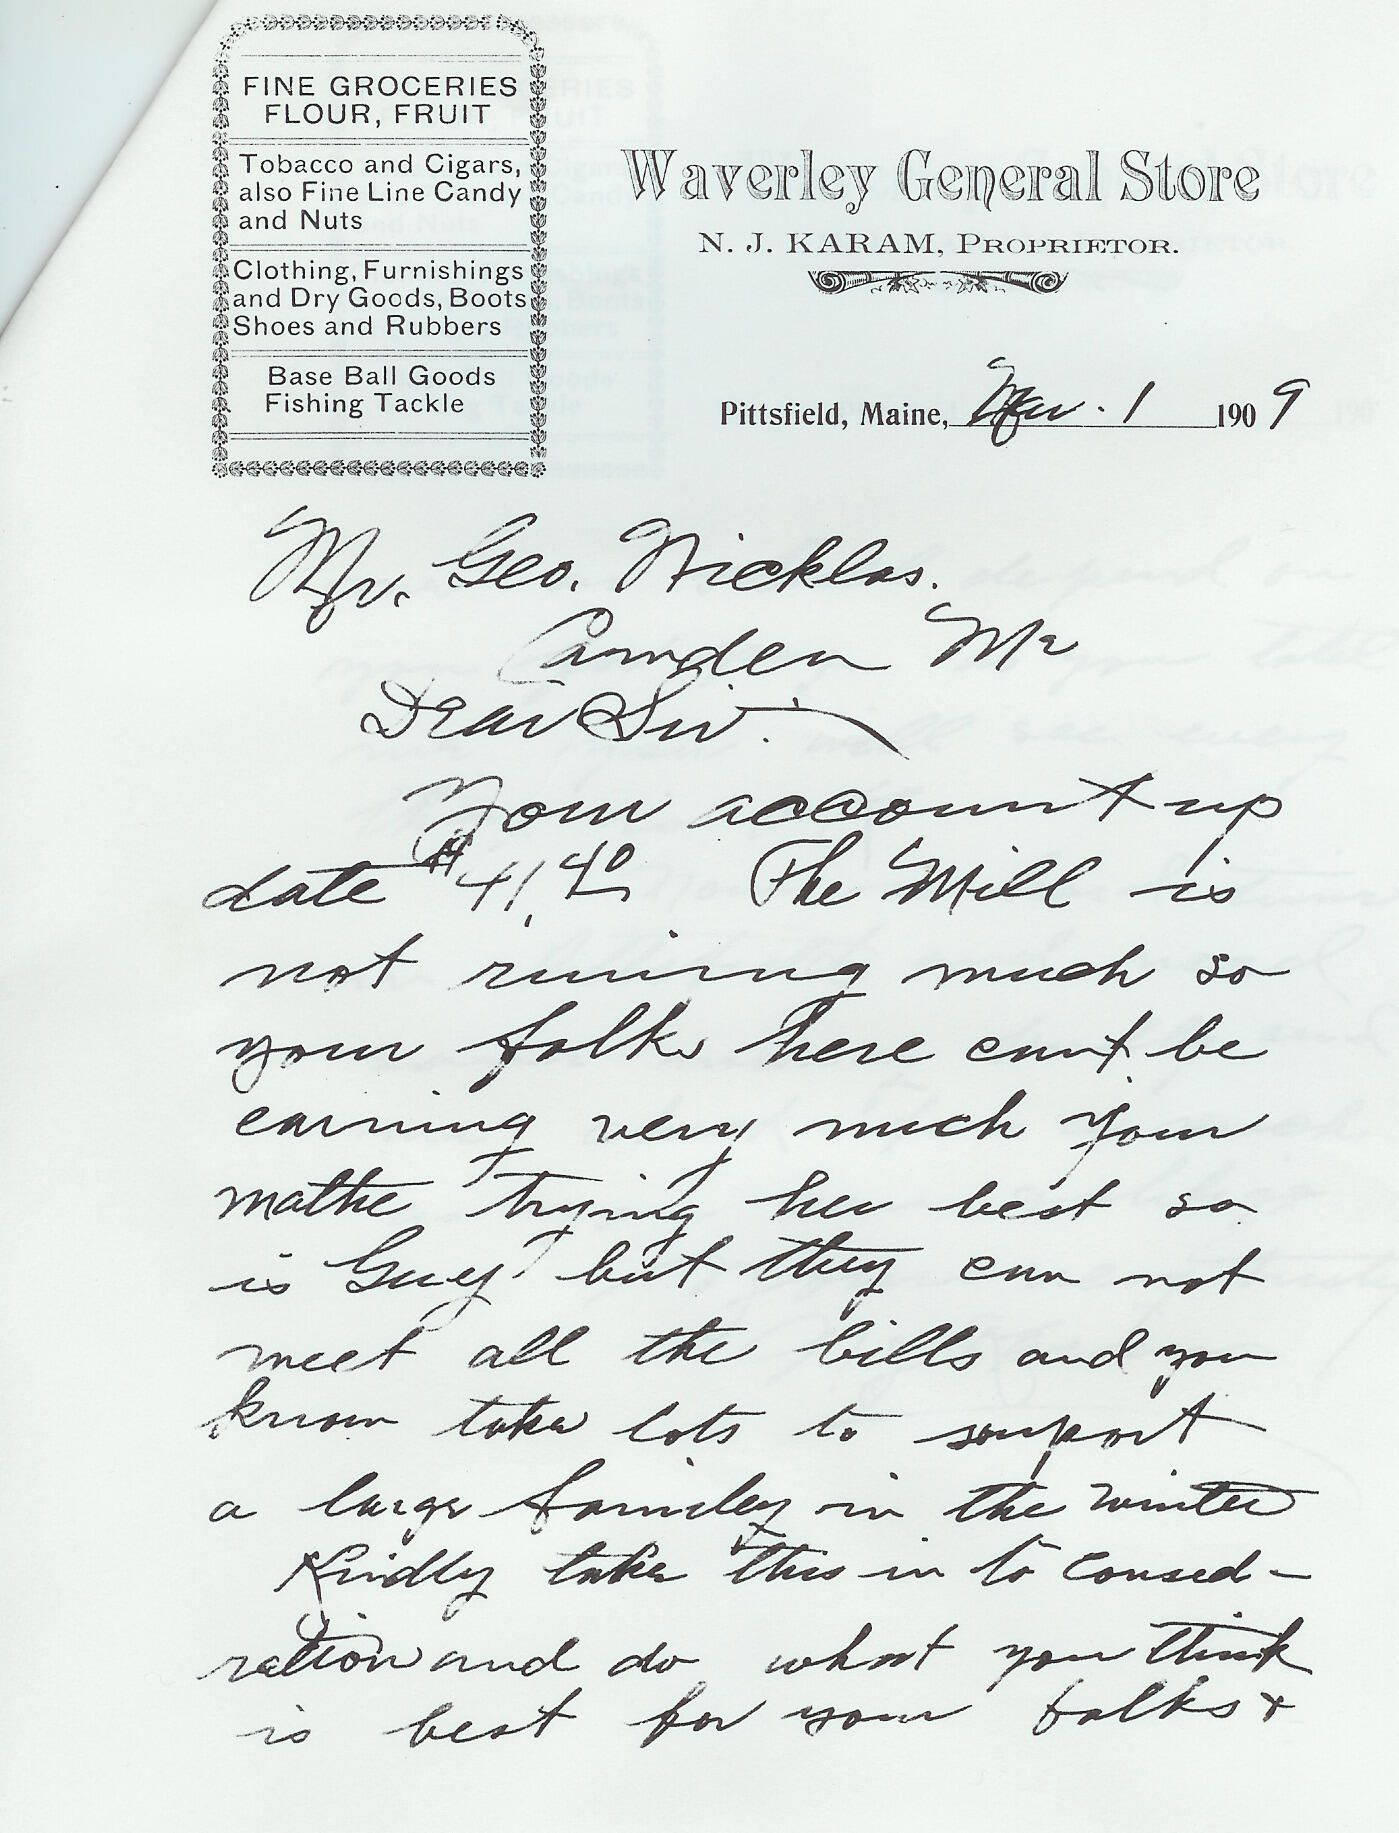 FINE GROCERIES
FLOUR, FRUIT
Tobacco and Cigars,
also Fine Line Candy
and Nuts
Clothing, Furnishings
and Dry Goods, Boots
Shoes and Rubbers
Base Ball Goods
Fishing Tackle
Waverley General Store
N. J. KARAM, PROPRIETOR.
Pittsfield, Maine, Mar. 1 1909
Mr. Geo. Nicklas.
Camden Me
Dear Sir.
Your account up
date $41.40 The Mill is
not runing much so
your folks here cant be
earning very much your
mothe trying her best so
is Guey but they can not
meet all the bills and you
know take lots to support
a large familey in the winter
Kindly take this in to consed-
ration and do what you think
is best for your folks +